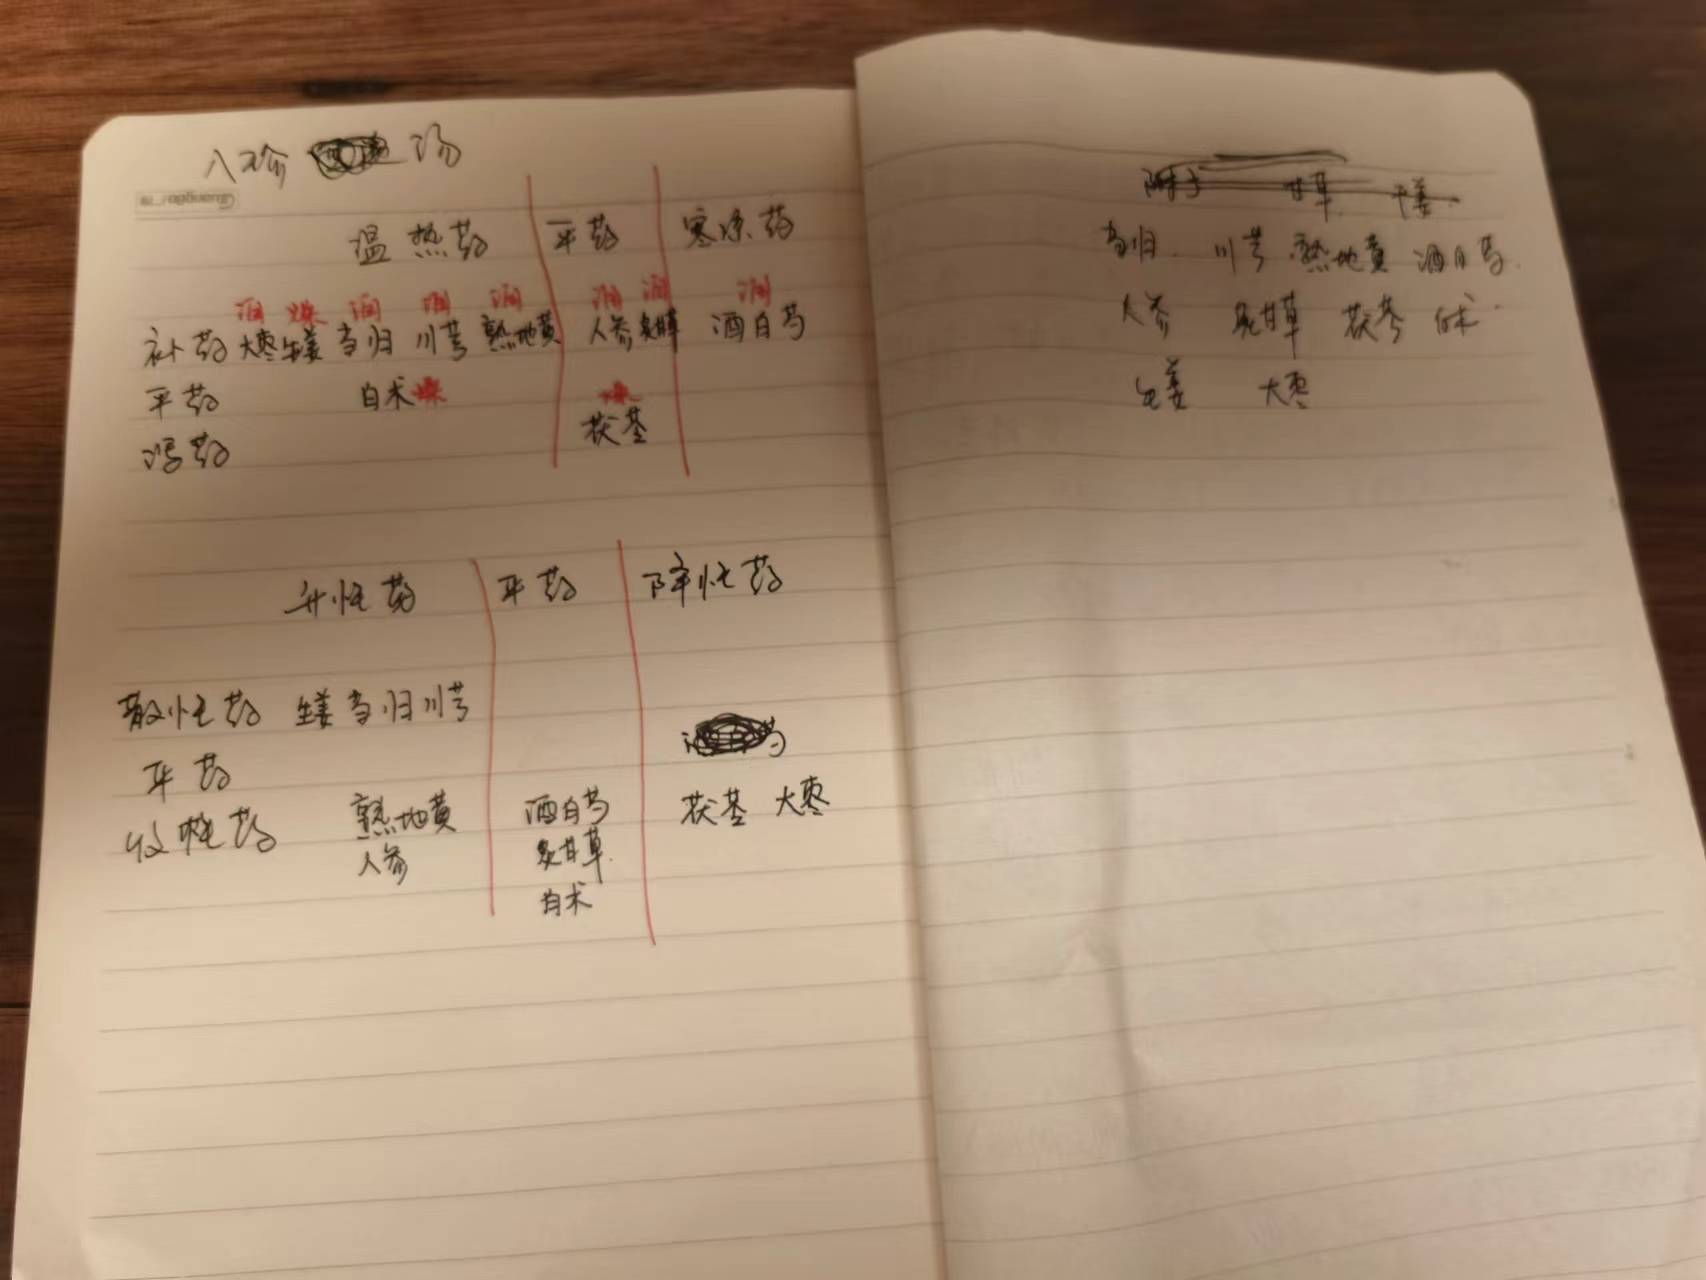 八珍 汤
Guangbo
温热药 平药 寒凉药
润 燥 润 润 润 润 润 润
补药 大枣 生姜 当归 川芎 熟地黄 人参 炙甘草 酒白芍
平药 白术 燥 燥
茯苓
泻药
升性药 平药 降性药
散性药 生姜 当归 川芎
平药
收性药 熟地黄 酒白芍 茯苓 大枣
人参 炙甘草
白术
附子 甘草 干姜
当归 川芎 熟地黄 酒白芍
人参 炙甘草 茯苓 白术
生姜 大枣